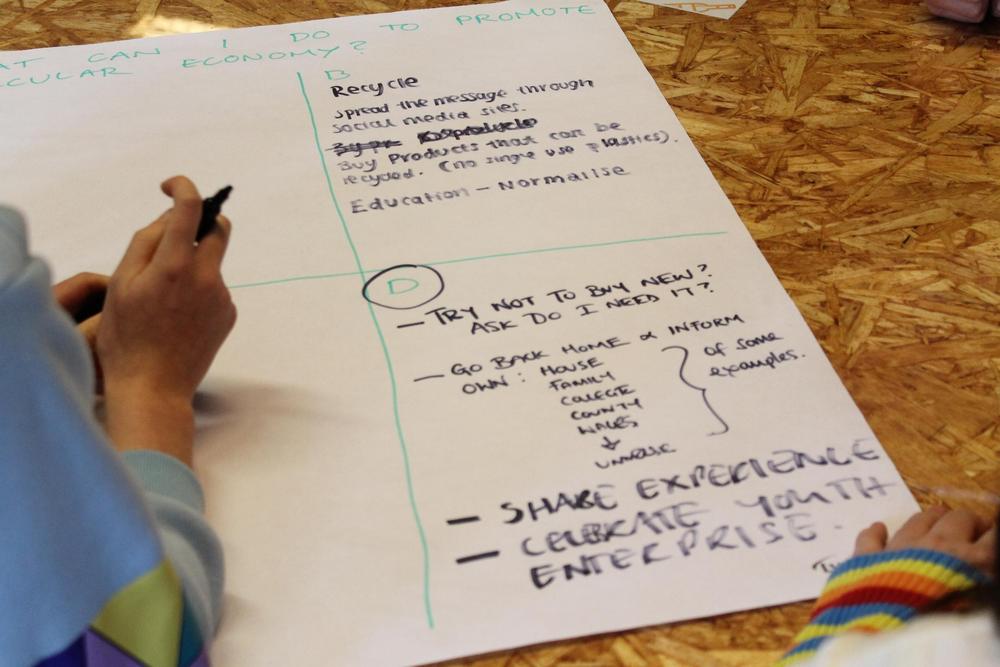 AT CAN I DO TO PROMOTE
CULAR ECONOMY?
B
Recycle
Spread the message through
social media sites.
Buy Products that can be
recycled. (no single use plastics).
Education - Normalise
D
- TRY NOT TO BUY NEW?
ASK DO I NEED IT?
- GO BACK HOME & INFORM
OWN: HOUSE
FAMILY
COLLEGE
COUNTY
WALES
↓
UNIVERSE
of some
examples.
- SHARE EXPERIENCE
- CELEBRATE YOUTH
ENTERPRISE.